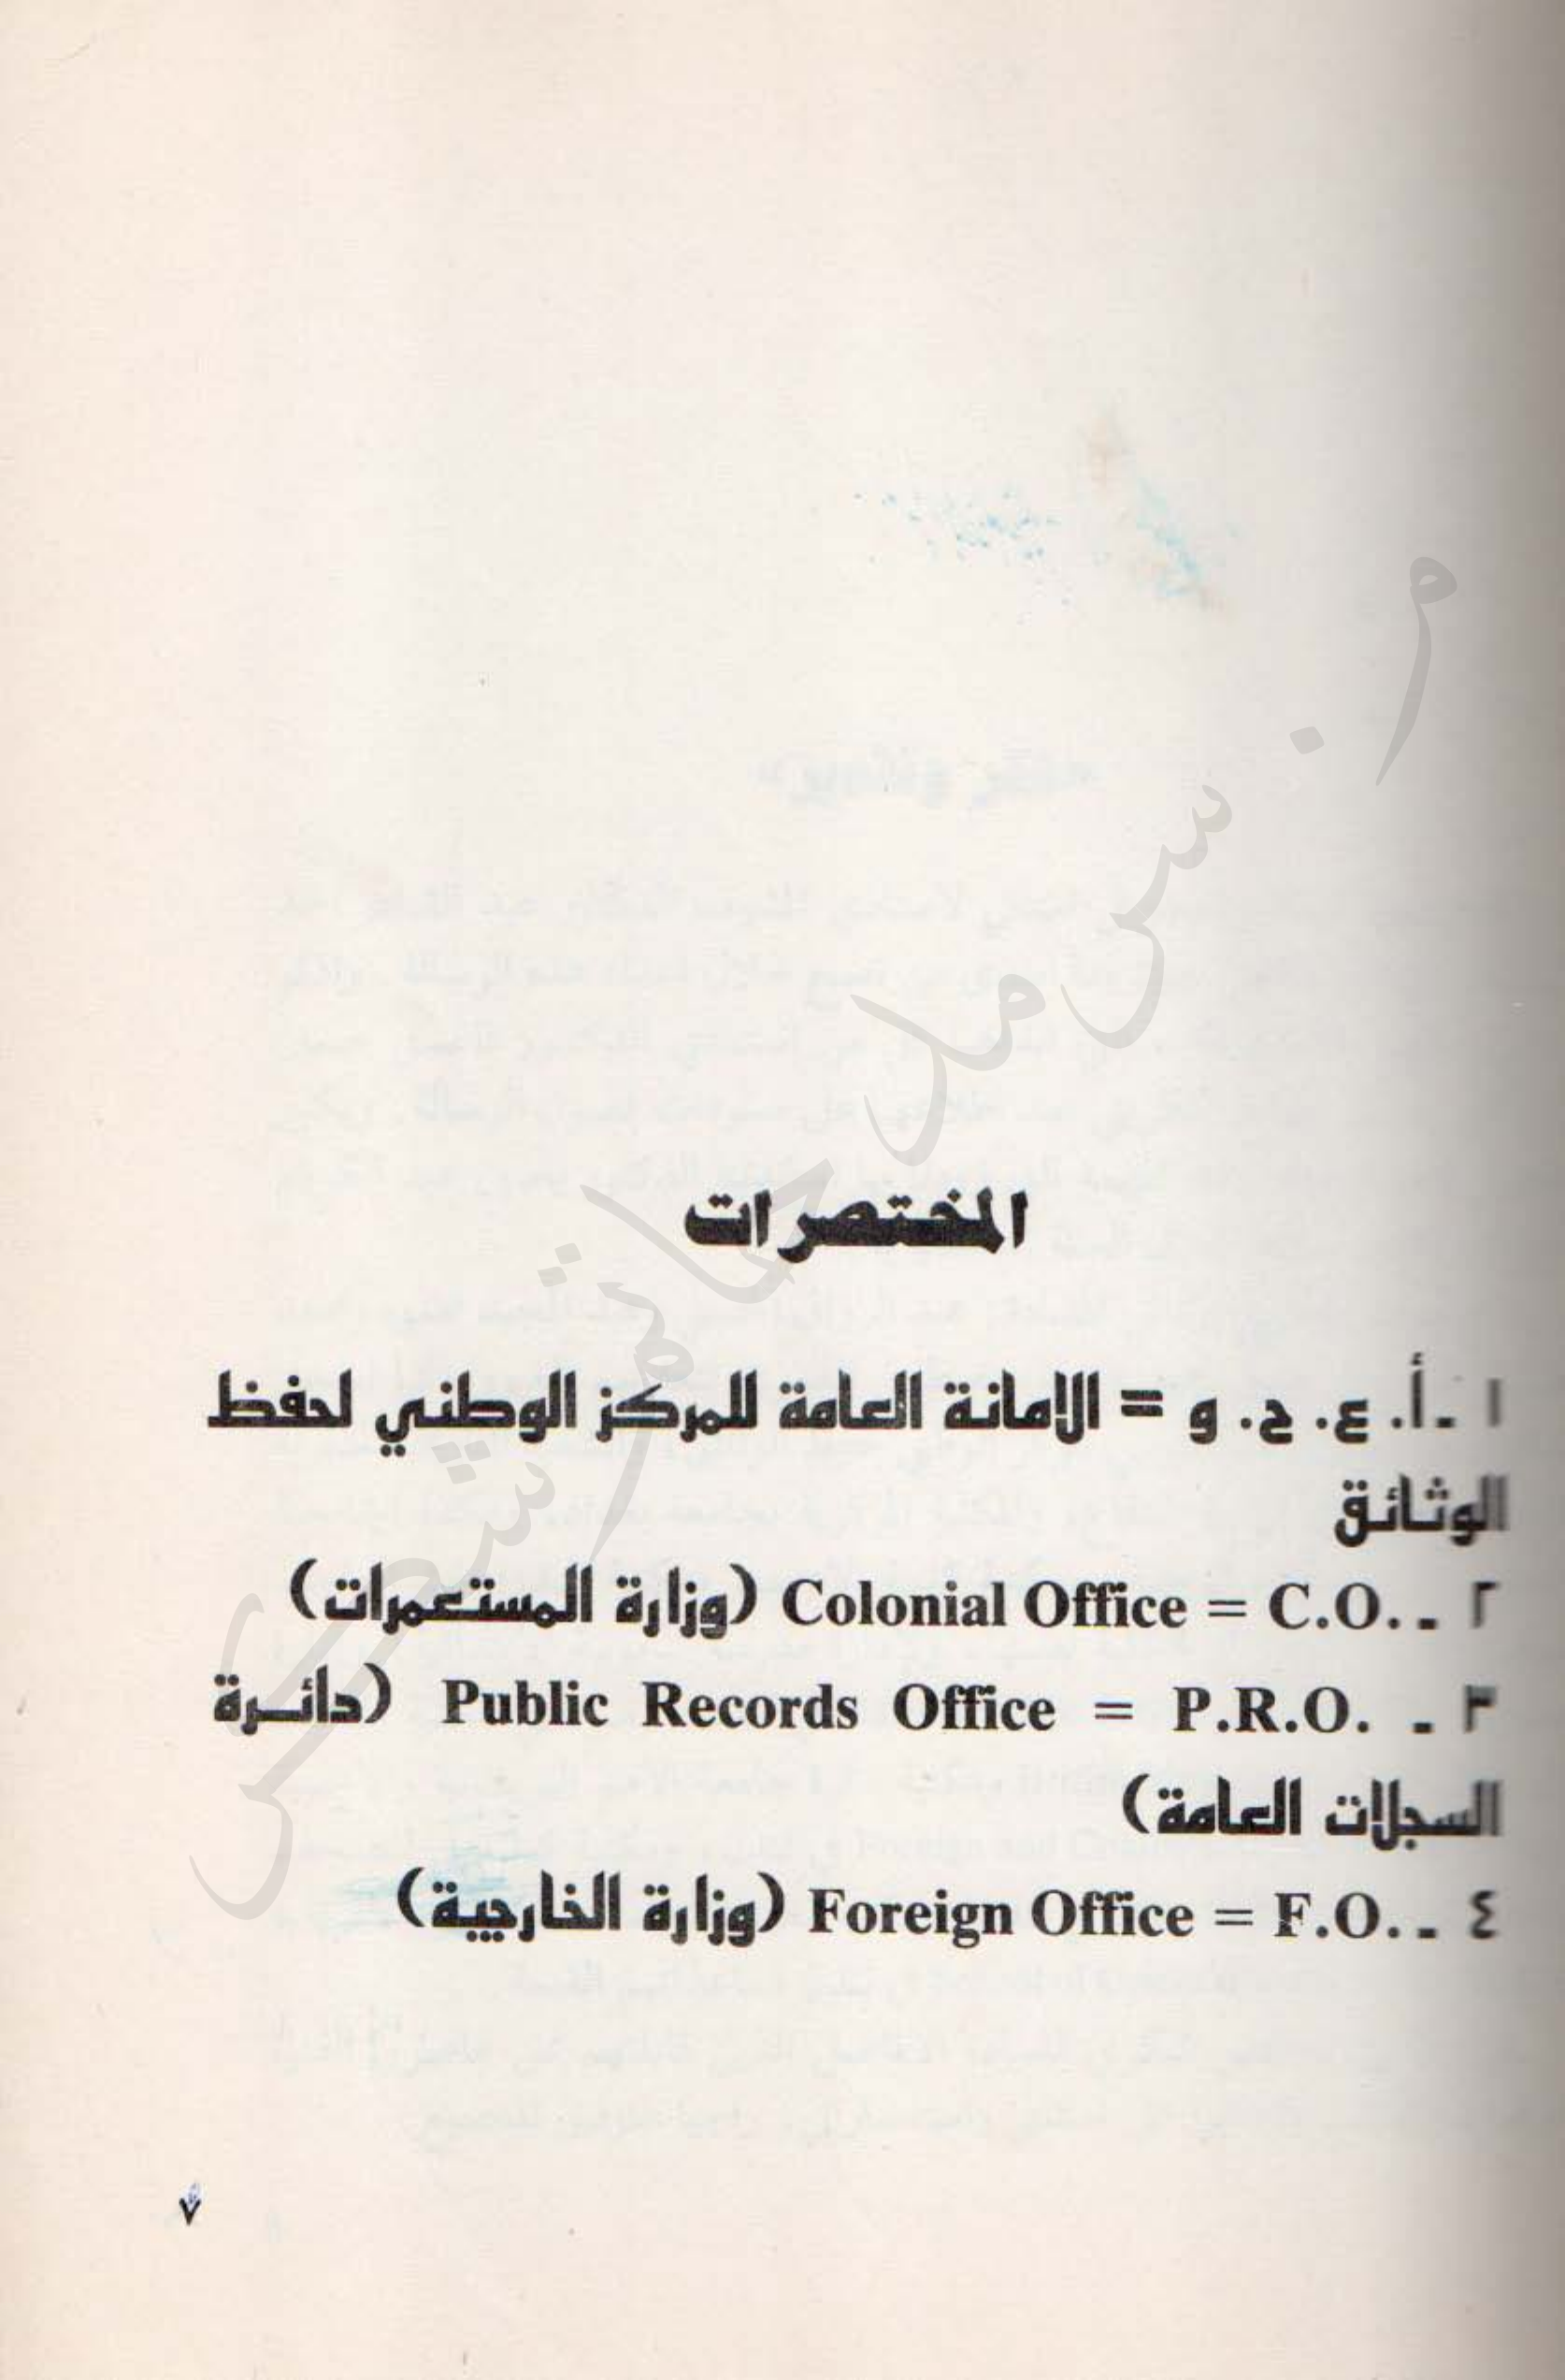 المختصرات
١ - أ. ع. ح. و = الامانة العامة للمركز الوطني لحفظ
الوثائق
٢ - .C.O = Colonial Office (وزارة المستعمرات)
٣ - .P.R.O = Public Records Office (دائرة
السجلات العامة)
٤ - .F.O = Foreign Office (وزارة الخارجية)
٧